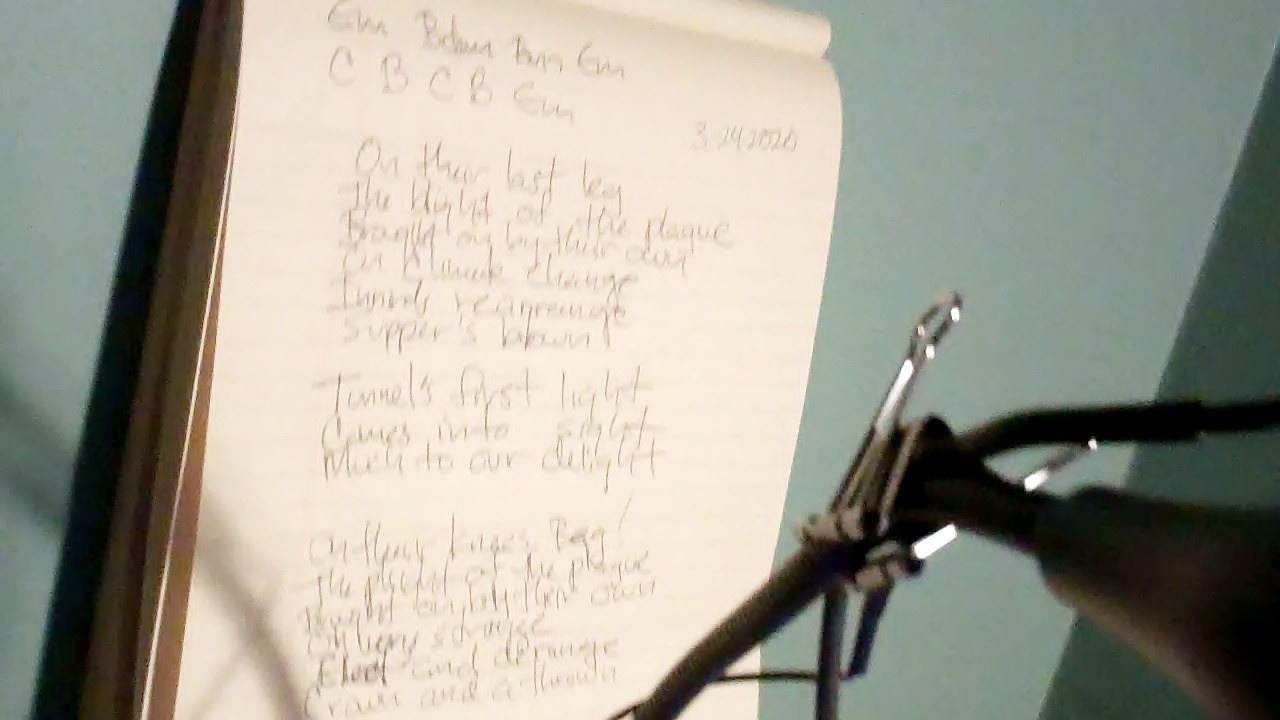 Em Bdim Em
C B C B Em
3-24-2020
On their last leg
The blight of the plague
Brought on by their own
On climate change
Tunnels rearrange
Supper's blown
Tunnel's first light
Comes into sight
Much to our delight
On their knees Beg!
The plight of the plague
Brought on by their own
strange
Elect and derange
Crown and a thrown